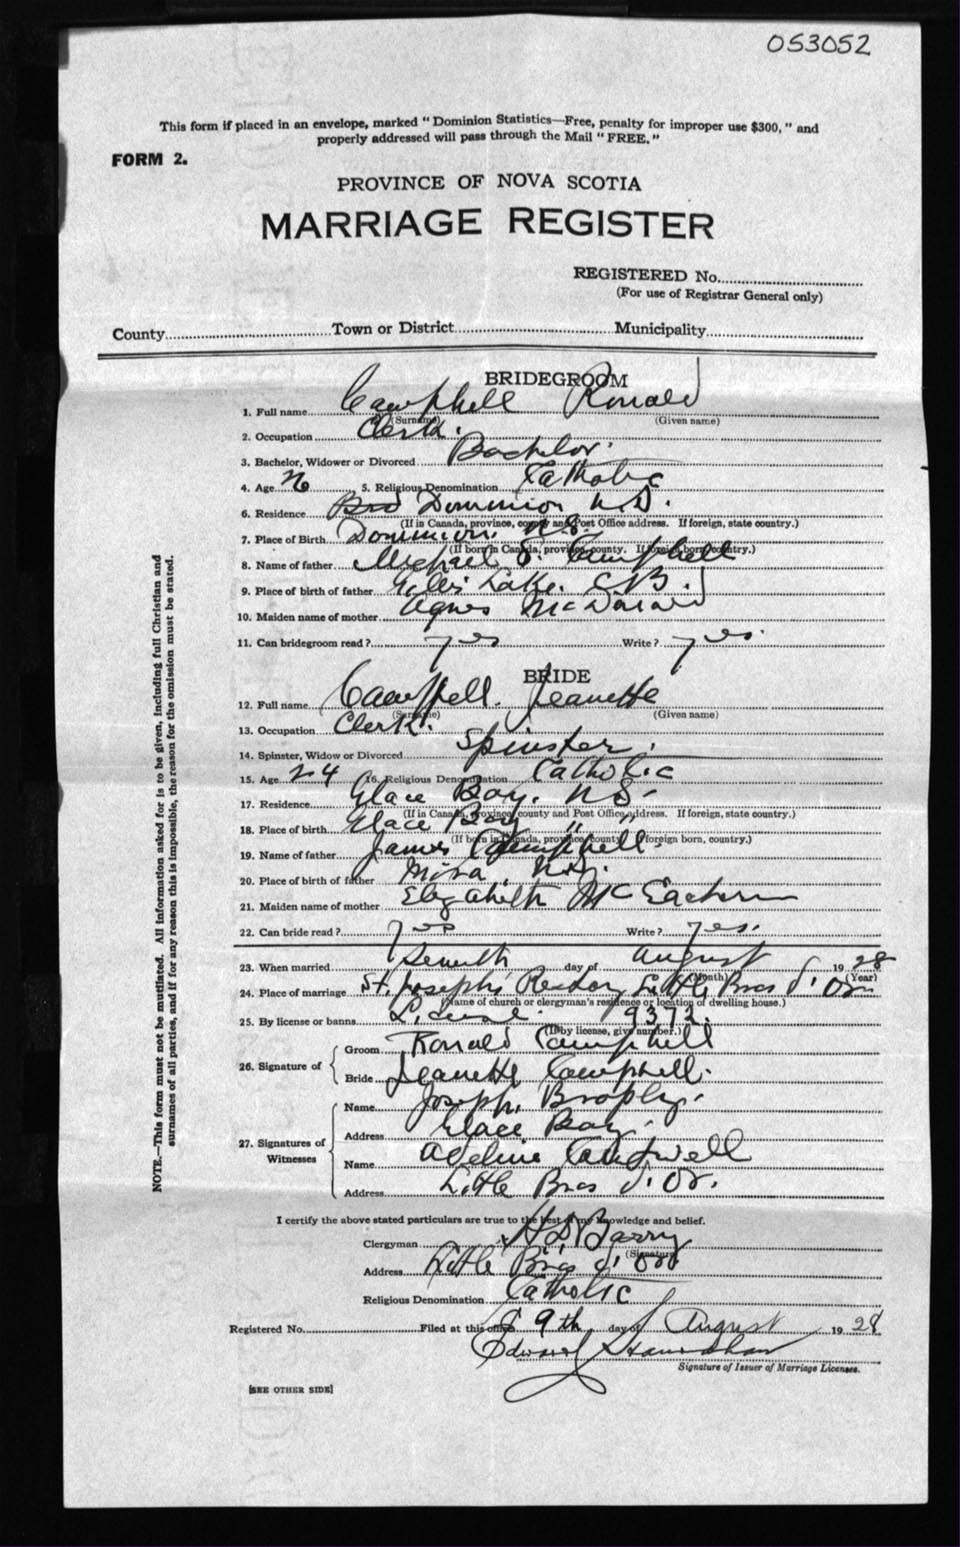 053052
This form if placed in an envelope, marked "Dominion Statistics—Free, penalty for improper use $300," and
properly addressed will pass through the Mail "FREE."
FORM 2.
PROVINCE OF NOVA SCOTIA
MARRIAGE REGISTER
REGISTERED No.
(For use of Registrar General only)
County Town or District Municipality
BRIDEGROOM
1. Full name Campbell Ronald
(Surname) (Given name)
2. Occupation Clerk.
3. Bachelor, Widower or Divorced Bachelor.
4. Age 26 5. Religious Denomination Catholic
6. Residence Dominion N.S.
(If in Canada, province, county and Post Office address. If foreign, state country.)
7. Place of Birth Dominion, N.S.
(If born in Canada, province, county. If foreign born, country.)
8. Name of father Michael S. Campbell
9. Place of birth of father Gillis Lake. C.B.
10. Maiden name of mother Agnes McDonald
11. Can bridegroom read? yes Write? yes.
BRIDE
12. Full name Campbell. Jeanette
(Surname) (Given name)
13. Occupation Clerk.
14. Spinster, Widow or Divorced Spinster.
15. Age 24 16. Religious Denomination Catholic
17. Residence Glace Bay, N.S.
(If in Canada, province, county and Post Office address. If foreign, state country.)
18. Place of birth Glace Bay "
(If born in Canada, province, county. If foreign born, country.)
19. Name of father James Campbell.
20. Place of birth of father Mira, N.S.
21. Maiden name of mother Elizabeth McEachern
22. Can bride read? yes Write? yes.
23. When married Seventh day of August 1928
(Month) (Year)
24. Place of marriage St. Joseph's Rectory Little Bras d'Or
(Name of church or clergyman's residence or location of dwelling house.)
25. By license or banns License. 9372.
(If by license, give number.)
26. Signature of { Groom Ronald Campbell
Bride Jeanette Campbell.
27. Signatures of Witnesses { Name Joseph Brophy.
Address Glace Bay.
Name Adeline Caldwell
Address Little Bras d'Or.
I certify the above stated particulars are true to the best of my knowledge and belief.
Clergyman H D Barry
(Signature)
Address Little Bras d'Or
Religious Denomination Catholic
Registered No. Filed at this office 9th day of August 1928
Edward
Signature of Issuer of Marriage Licenses.
[SEE OTHER SIDE]
NOTE.—This form must not be mutilated. All information asked for is to be given, including full Christian and
surnames of all parties, and if for any reason this is impossible, the reason for the omission must be stated.